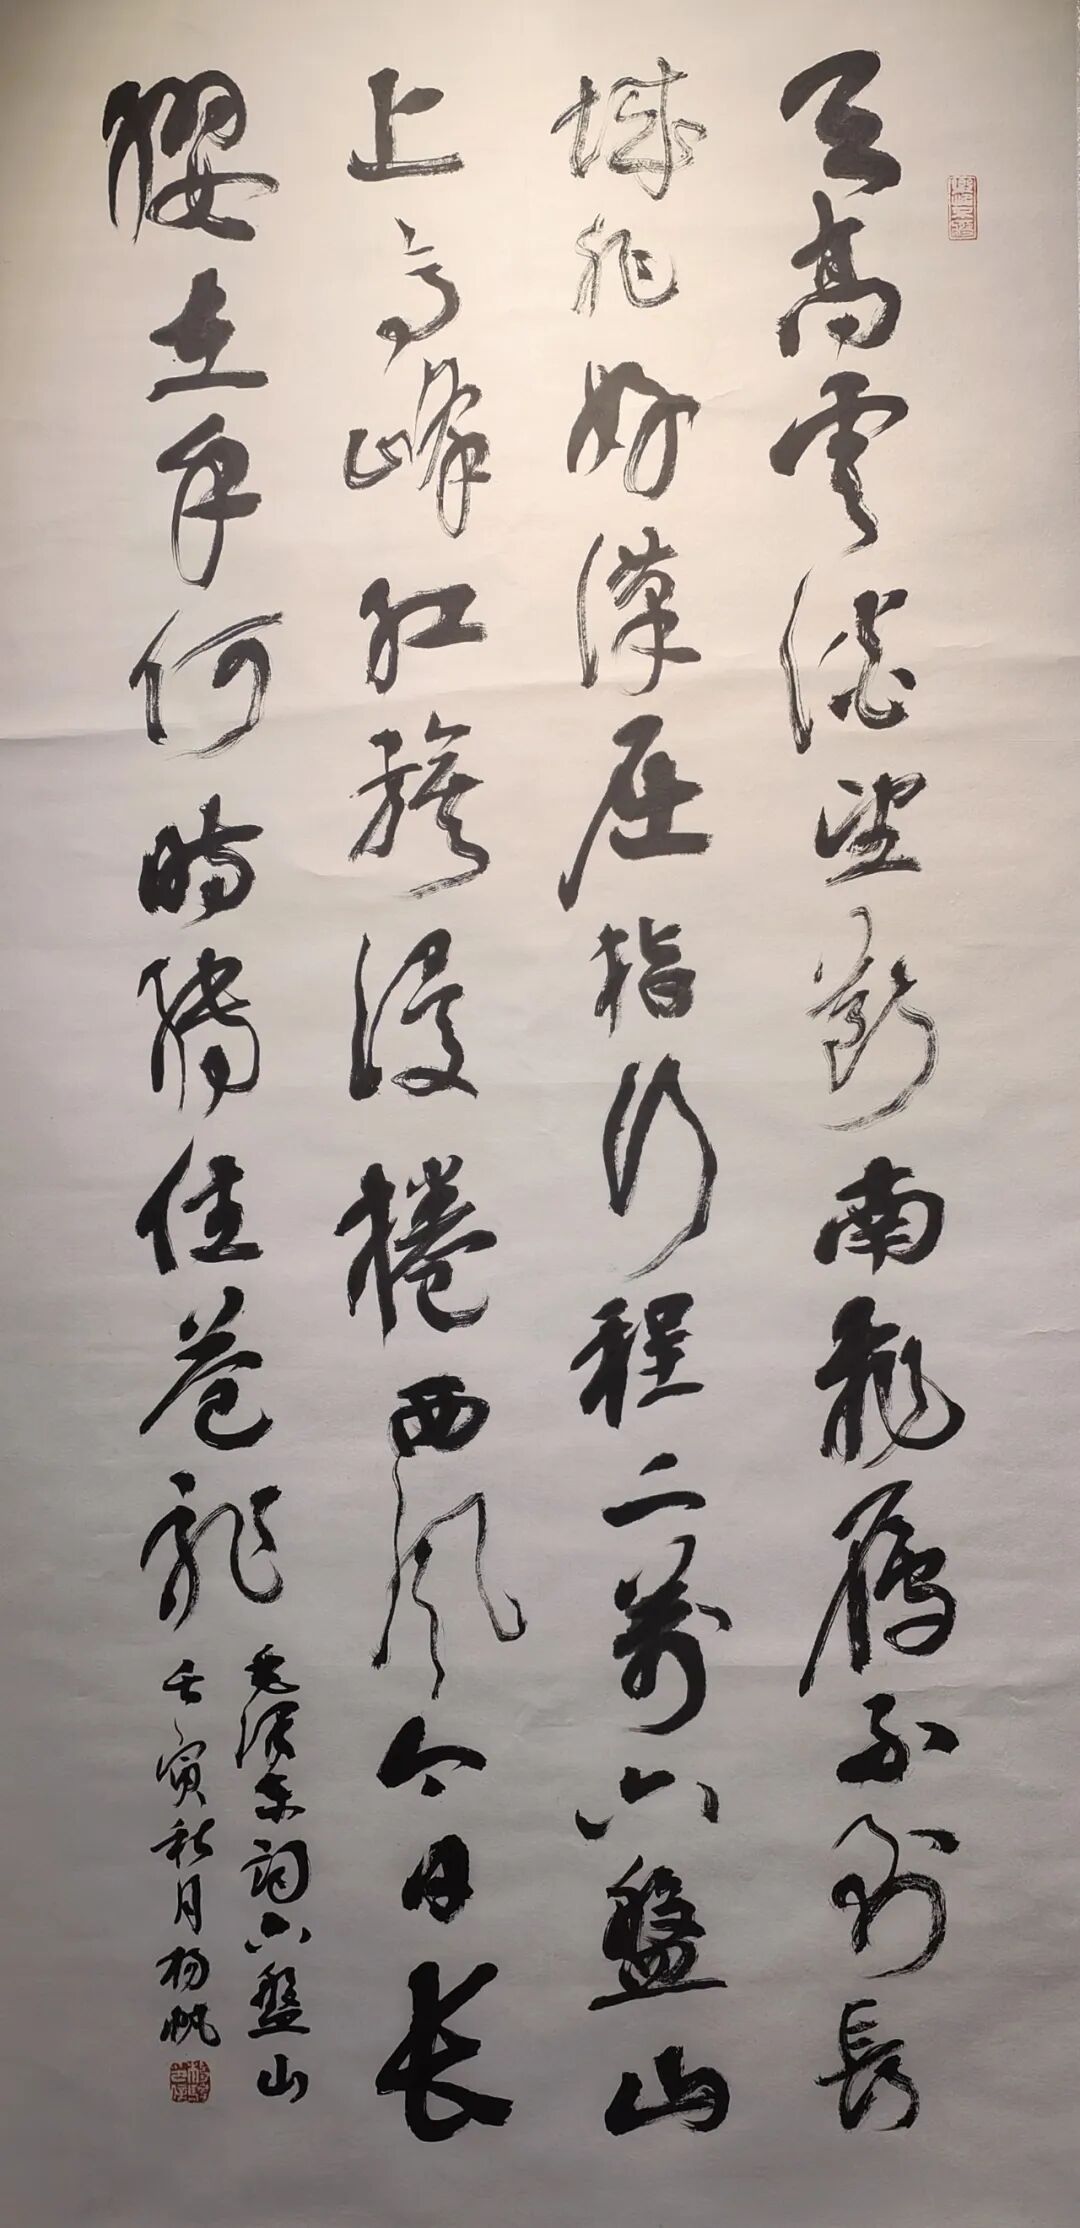 天高雲淡望斷南飛雁不到長
城非好漢屈指行程二萬六盤山
上高峰紅旗漫捲西風今日长
纓在手何時縛住蒼龍
毛澤东詞六盤山
壬寅秋月杨帆